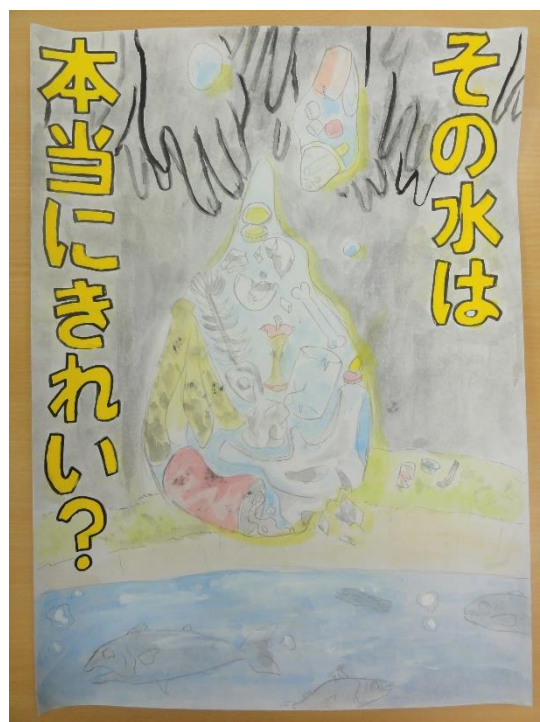 その水は
本当にきれい?